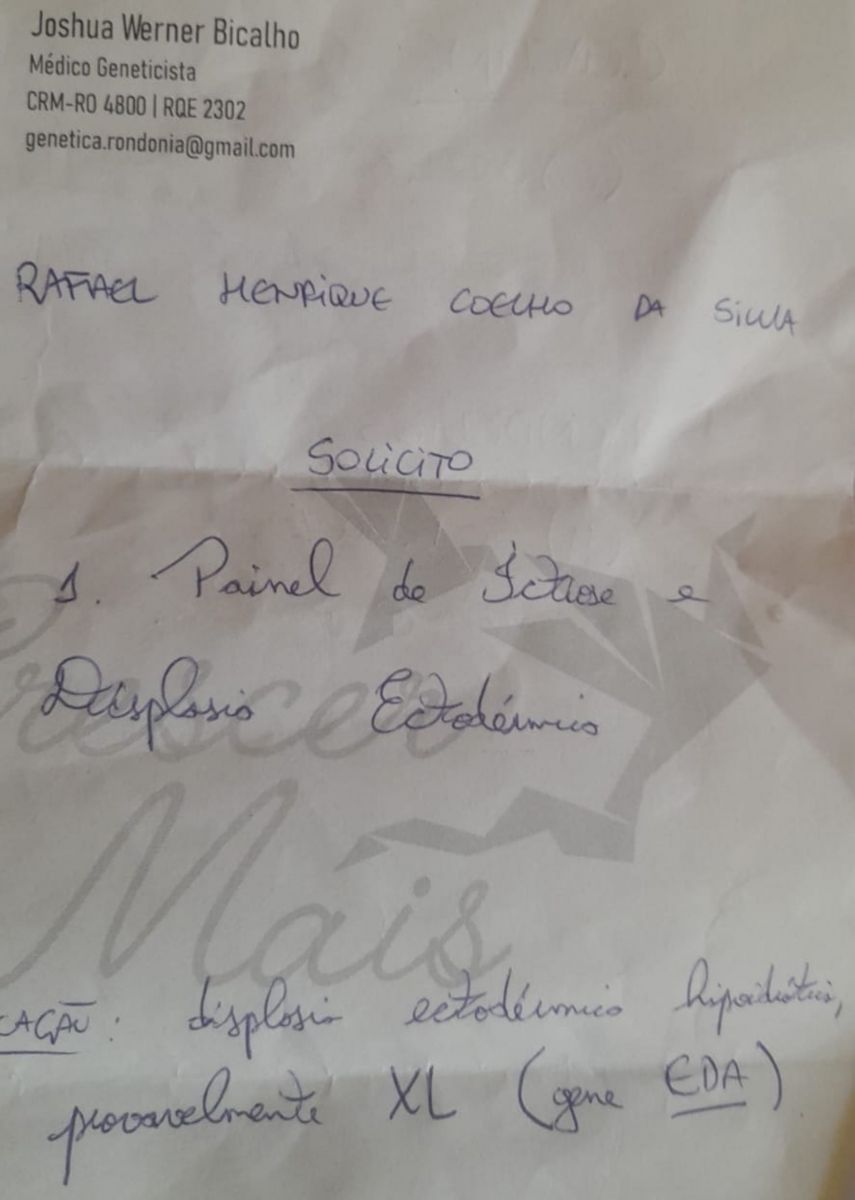 Joshua Werner Bicalho
Médico Geneticista
CRM-RO 4800 | RQE 2302
genetica.rondonia@gmail.com
RAFAEL HENRIQUE COELHO DA SILVA
SOLICITO
1. Painel de Ictiose e
Displasia Ectodérmica
Crescer
Mais
CAÇÃO: displasia ectodérmica hipoidrótica,
provavelmente XL (gene EDA)